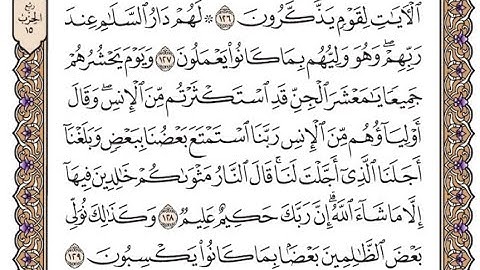 ٱلْأٓيَٰتِ لِقَوْمٍ يَذَّكَّرُونَ ١٢٦ ۞ لَهُمْ دَارُ ٱلسَّلَٰمِ عِندَ
رَبِّهِمْۖ وَهُوَ وَلِيُّهُم بِمَا كَانُوا۟ يَعْمَلُونَ ١٢٧ وَيَوْمَ يَحْشُرُهُمْ
جَمِيعًا يَٰمَعْشَرَ ٱلْجِنِّ قَدِ ٱسْتَكْثَرْتُم مِّنَ ٱلْإِنسِۖ وَقَالَ
أَوْلِيَآؤُهُم مِّنَ ٱلْإِنسِ رَبَّنَا ٱسْتَمْتَعَ بَعْضُنَا بِبَعْضٍ وَبَلَغْنَآ
أَجَلَنَا ٱلَّذِىٓ أَجَّلْتَ لَنَاۚ قَالَ ٱلنَّارُ مَثْوَىٰكُمْ خَٰلِدِينَ فِيهَآ
إِلَّا مَا شَآءَ ٱللَّهُۗ إِنَّ رَبَّكَ حَكِيمٌ عَلِيمٌ ١٢٨ وَكَذَٰلِكَ نُوَلِّى
بَعْضَ ٱلظَّٰلِمِينَ بَعْضًۢا بِمَا كَانُوا۟ يَكْسِبُونَ ١٢٩
ربع
الحزب
١٥